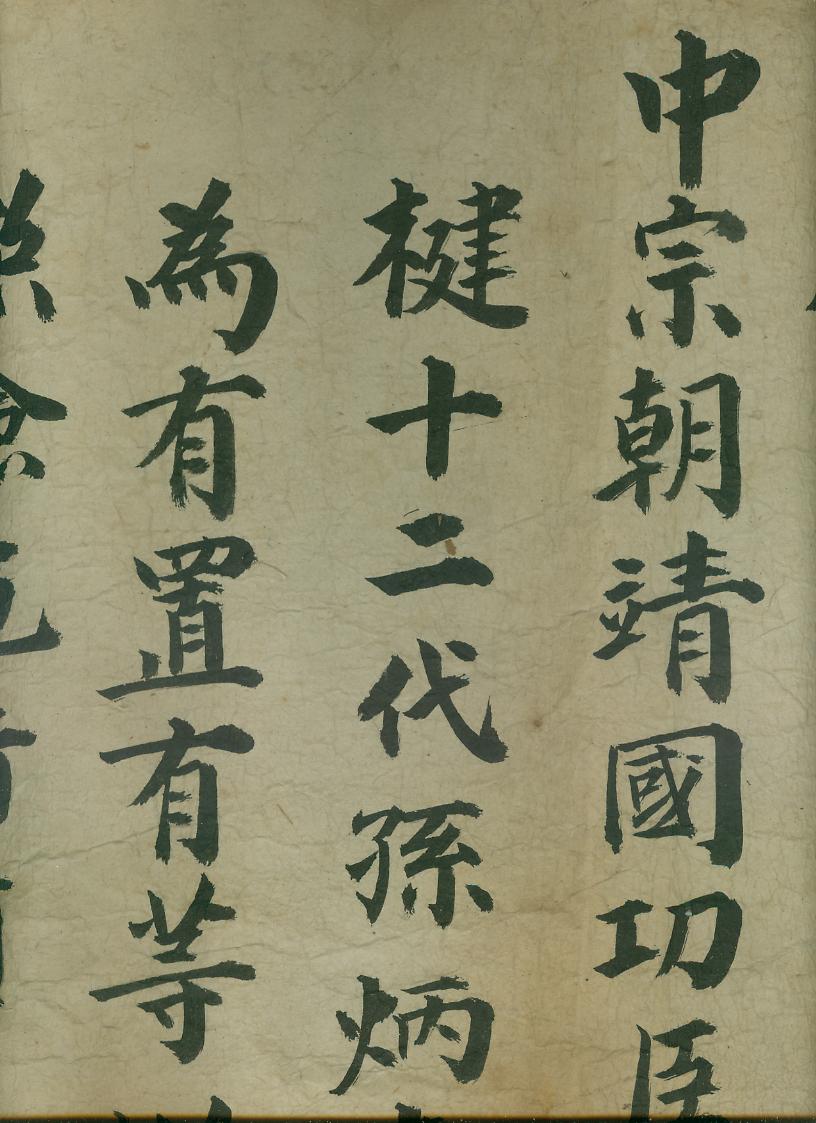 中宗朝靖國功臣
楗十二代孫炳
為有置有等